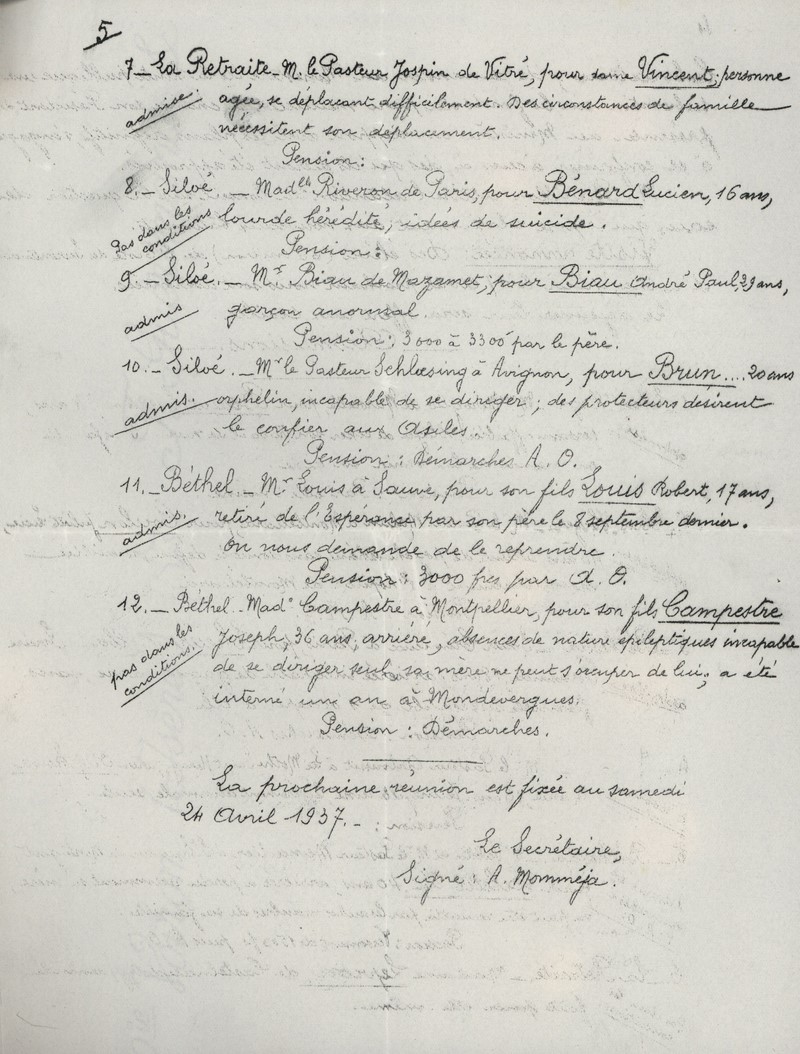 5
7_ La Retraite_ M. le Pasteur Jospin de Vitré, pour dame Vincent, personne
admise.
âgée, se déplaçant difficilement. Des circonstances de famille
nécessitent son déplacement.
Pension:
8._ Siloé. _ Madlle Riveron de Paris, pour Bénard Lucien, 16 ans,
Pas dans les
conditions
lourde hérédité, idées de suicide.
Pension:
9._ Siloé. _ Mr Biau de Mazamet, pour Biau André Paul, 29 ans,
admis
garçon anormal.
Pension: 3000 à 3300 par le père.
10._ Siloé. _ Mr le Pasteur Schlœsing à Avignon, pour Brun .... 20 ans
admis.
orphelin, incapable de se diriger; des protecteurs désirent
le confier aux Asiles.
Pension: Démarches A. O.
11._ Béthel _ Mr Louis à Sauve, pour son fils Louis Robert, 17 ans,
admis.
retiré de l'Espérance par son père le 8 septembre dernier.
On nous demande de le reprendre.
Pension: 3000 frcs par A. O.
12._ Béthel _ Made Campestre à Montpellier, pour son fils Campestre
pas dans les
conditions.
Joseph, 36 ans, arriéré, absences de nature épileptiques incapable
de se diriger seul, sa mère ne peut s'occuper de lui; a été
interné un an à Mondevergues.
Pension: Démarches.
La prochaine réunion est fixée au samedi
24 Avril 1937._
Le Secrétaire,
Signé: A. Momméja.